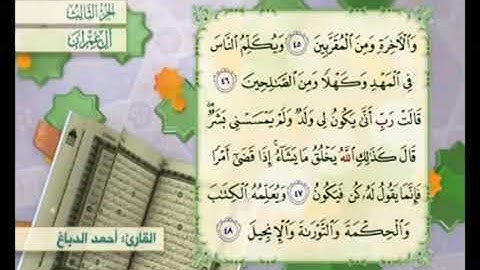 الجزء الثالث
آل عمران
وَالْآخِرَةِ وَمِنَ الْمُقَرَّبِينَ ٤٥ وَيُكَلِّمُ النَّاسَ
فِي الْمَهْدِ وَكَهْلًا وَمِنَ الصَّالِحِينَ ٤٦
قَالَتْ رَبِّ أَنَّىٰ يَكُونُ لِي وَلَدٌ وَلَمْ يَمْسَسْنِي بَشَرٌ ۖ
قَالَ كَذَٰلِكِ اللَّهُ يَخْلُقُ مَا يَشَاءُ ۚ إِذَا قَضَىٰ أَمْرًا
فَإِنَّمَا يَقُولُ لَهُ كُن فَيَكُونُ ٤٧ وَيُعَلِّمُهُ الْكِتَابَ
وَالْحِكْمَةَ وَالتَّوْرَاةَ وَالْإِنجِيلَ ٤٨
القارئ: أحمد الدباغ